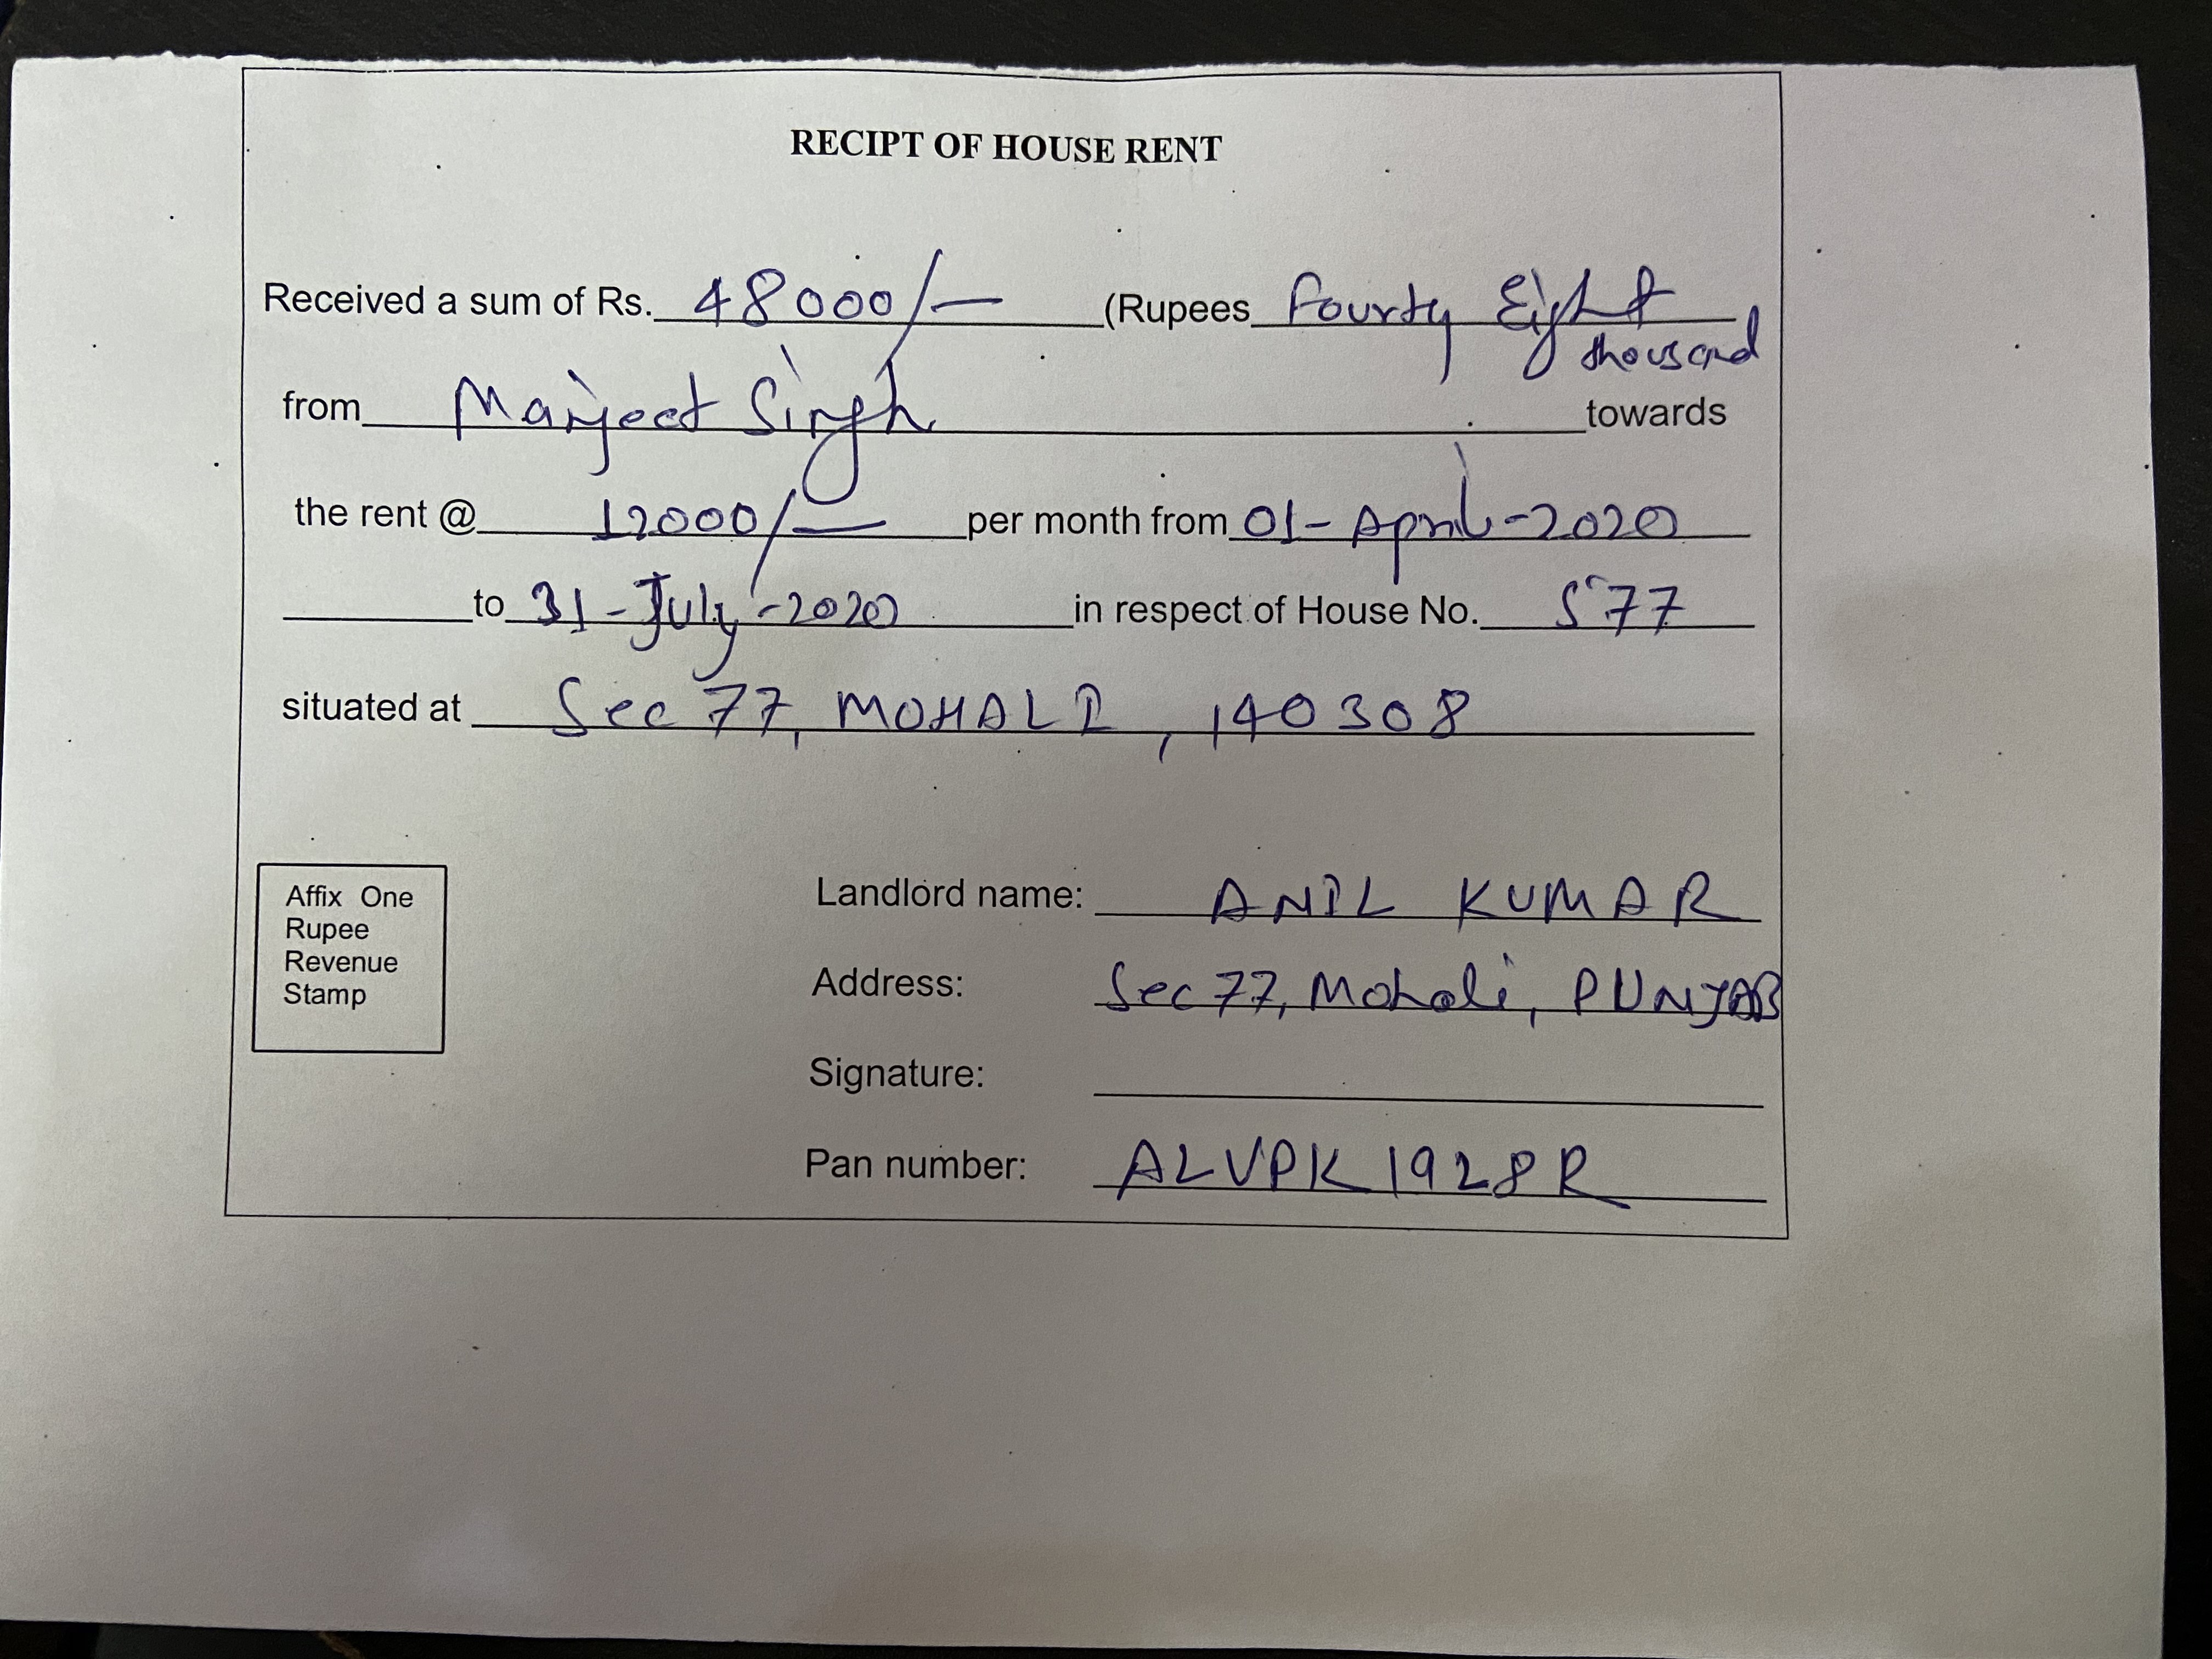 RECIPT OF HOUSE RENT
Received a sum of Rs. 48000/- (Rupees Fourty Eight
thousand
from Manjeet Singh towards
the rent @ 12000/- per month from 01-April-2020
to 31-July-2020 in respect of House No. 577
situated at Sec 77, MOHALI, 140308
Affix One
Rupee
Revenue
Stamp
Landlord name: ANIL KUMAR
Address: Sec 77, Mohali, PUNJAB
Signature:
Pan number: ALVPK1928R